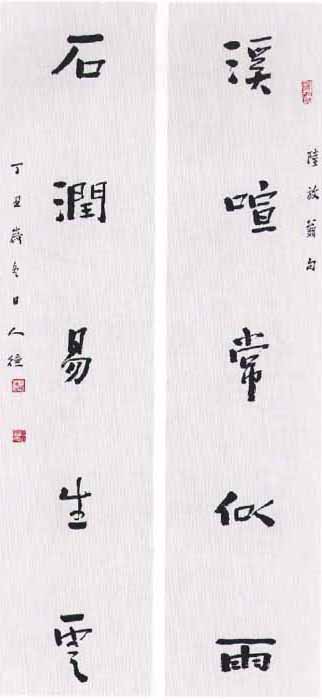 陸放翁句
溪喧常似雨
石潤易生雲
丁丑歲冬日人德